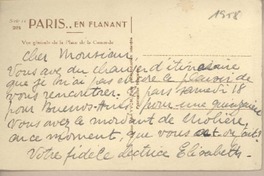 1958
PARIS... EN PLANANT
Vue générale de la Place de la Concorde
Cher Monsieur,
Vous avez du changer d'itinéraire
que je n'ai pas encore le plaisir de
vous rencontrer. Je pars samedi 18
pour Buenos-Aires pour une quinzaine
Vous avez le mordant de Molière,
au ce moment, que vous
Votre fidèle lectrice Elisabeth.